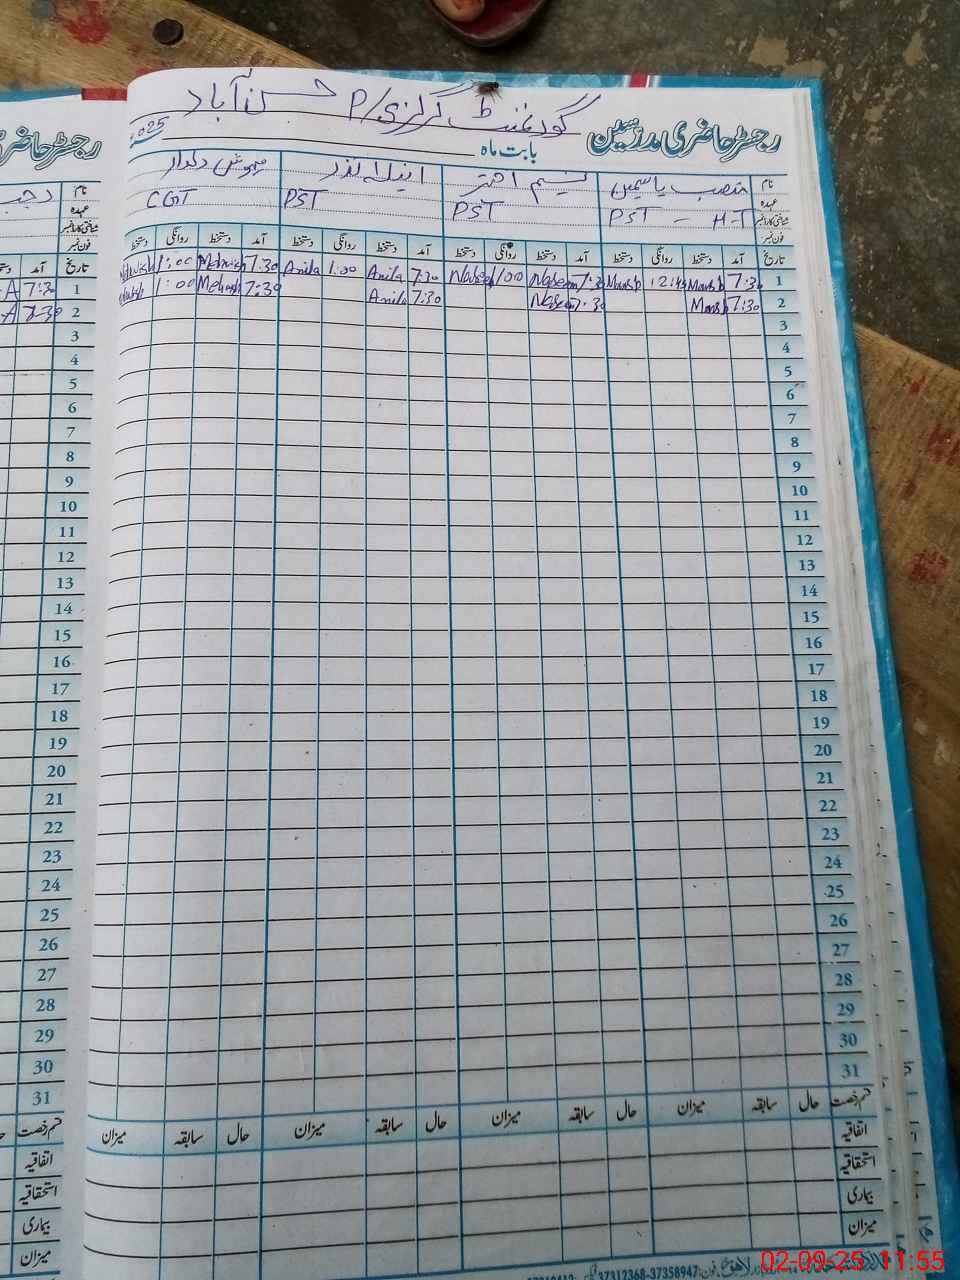 گورنمنٹ گرلز P/ حسن آباد
رجسٹر حاضری مدرسین
بابت ماہ 2025
نام منصب یاسمین نسیم اختر انیلا نذر مہوش دلدار
عہدہ PST - H-T PST PST CGT
شناختی کارڈ نمبر
فون نمبر
تاریخ آمد دستخط روانگی دستخط آمد دستخط روانگی دستخط آمد دستخط روانگی دستخط آمد دستخط روانگی دستخط
1 7:30 7:30 Naseem 1:00 7:30 Anila 1:00 Anila 7:30 Mehwish 1:00 Mehwish
2 7:30 7:30 Naseem 7:30 Anila 7:30 Mehwish 1:00
3
4
5
6
7
8
9
10
11
12
13
14
15
16
17
18
19
20
21
22
23
24
25
26
27
28
29
30
31
قسم رخصت حال سابقہ میزان حال سابقہ میزان حال سابقہ میزان حال سابقہ میزان
اتفاقیہ
استحقاقیہ
بیماری
میزان
فون: 37358947-37312368
رجسٹر حاضر
تاریخ آمد
1 7:30 A
2 7:30 A
3
4
5
6
7
8
9
10
11
12
13
14
15
16
17
18
19
20
21
22
23
24
25
26
27
28
29
30
31
قسم رخصت حال
اتفاقیہ
استحقاقیہ
بیماری
میزان
02-09-25 11:55